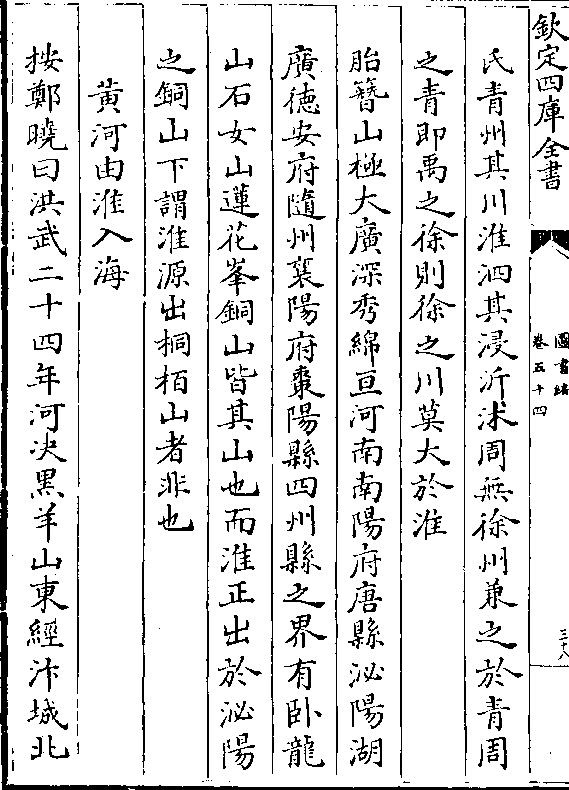 欽定四庫全書
圖書編
卷五十四
三十八
氏青州其川淮泗其浸沂沭周無徐州兼之於青周
之青即禹之徐則徐之川莫大於淮
胎簪山極大廣深秀綿亘河南南陽府唐縣泌陽湖
廣德安府隨州襄陽府棗陽縣四州縣之界有卧龍
山石女山蓮花峯銅山皆其山也而淮正出於泌陽
之銅山下謂淮源出桐栢山者非也
黄河由淮入海
按鄭曉曰洪武二十四年河决黒羊山東經汴城北